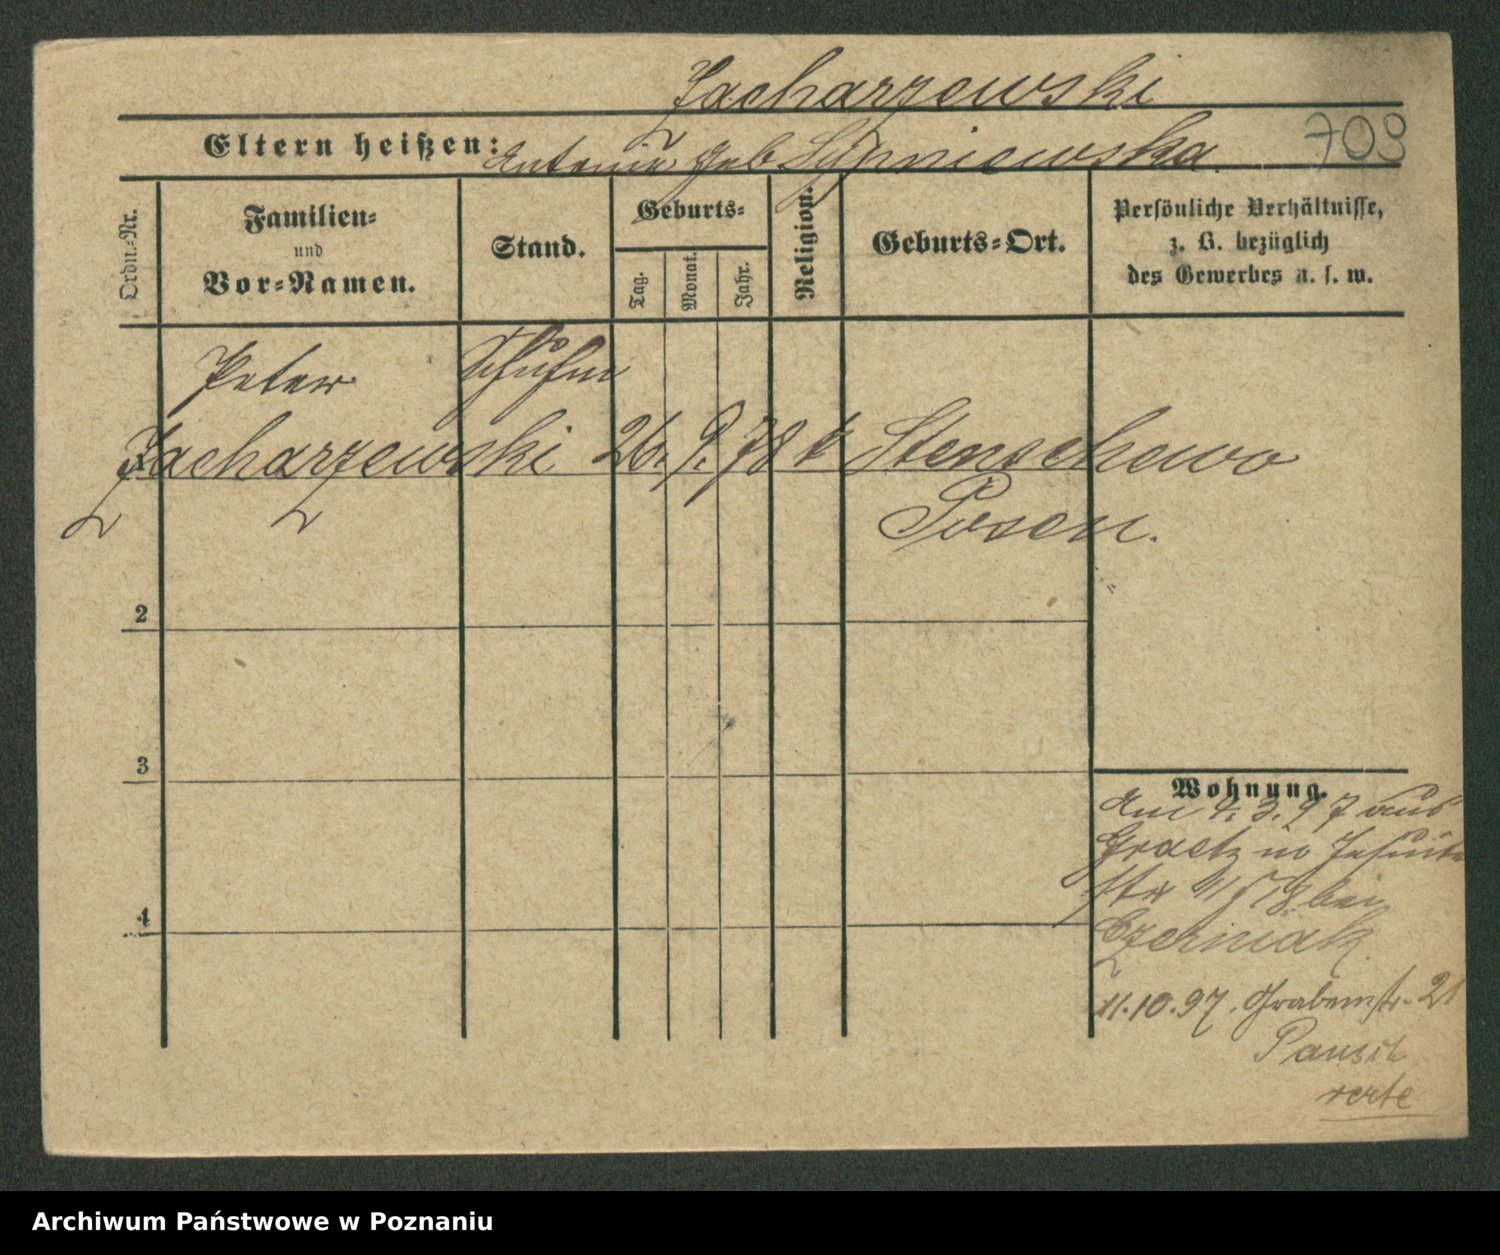 Zacharzewski
Eltern heißen: Antonie geb Lipniewska
709
Ordn.-Nr.
Familien-
und
Vor-Namen.
Stand.
Geburts-
Tag.
Monat.
Jahr.
Religion.
Geburts-Ort.
Persönliche Verhältnisse,
z. B. bezüglich
des Gewerbes u. s. w.
Peter
Zacharzewski 26. 9. 78 k Stenschewo
Posen.
2
3
4
Wohnung.
Am 4. 3. 97 aus
Graetz in Jesuiten
str bei
Czerniak
11.10.97. Grabenstr. 21
verte
Archiwum Państwowe w Poznaniu